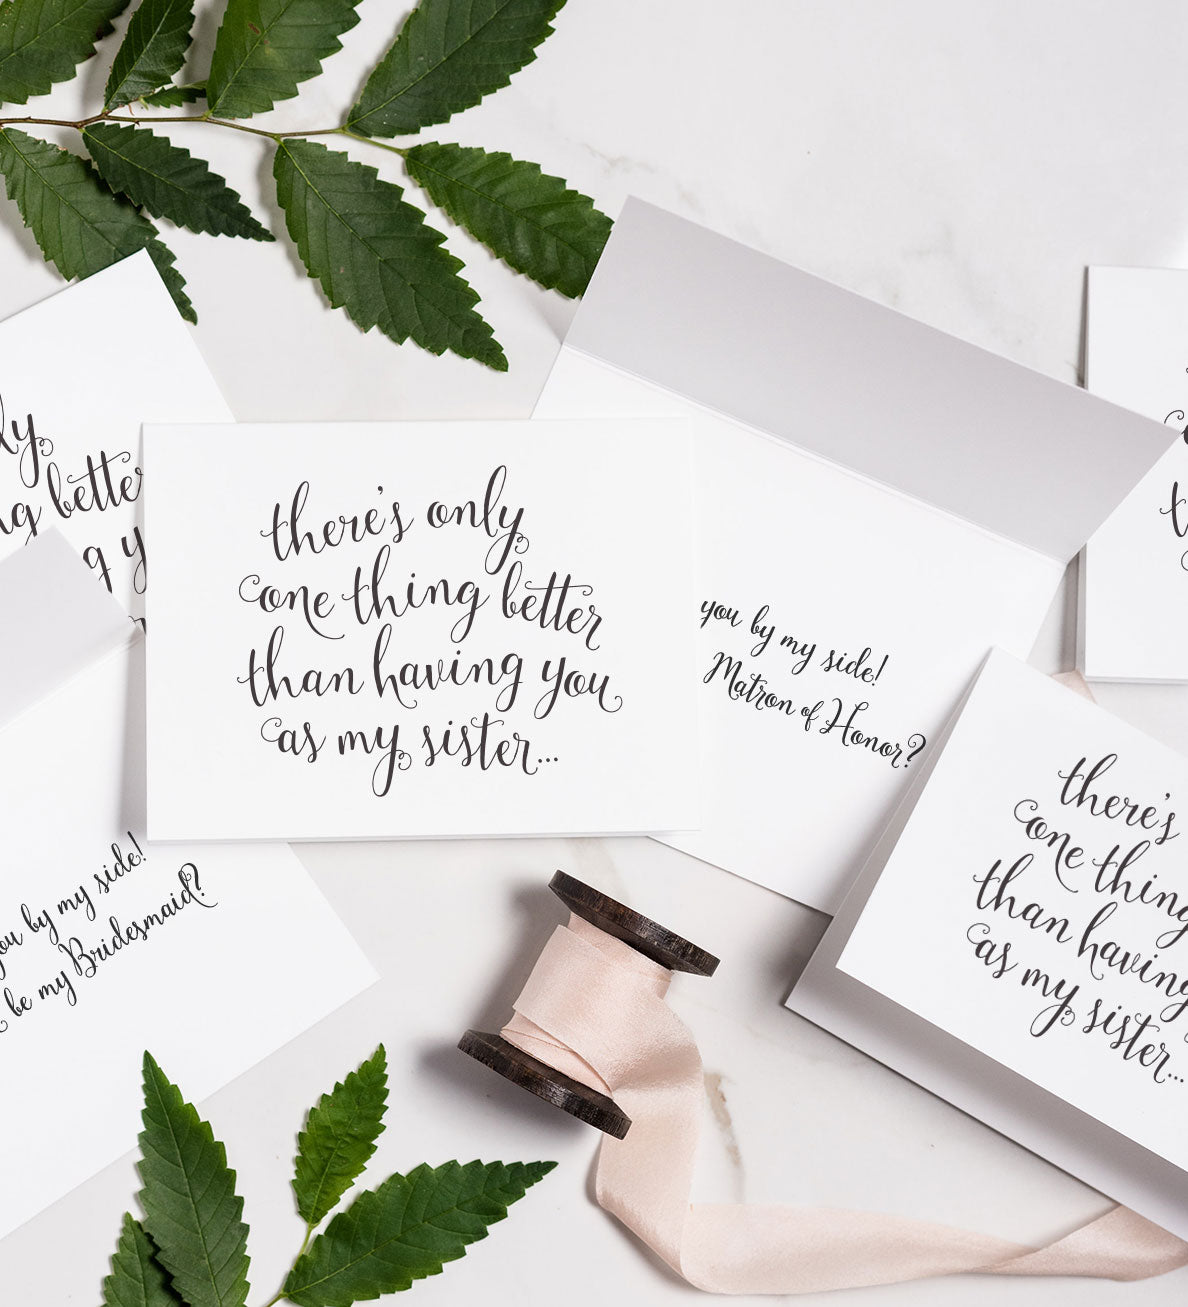 there's only
one thing better
than having you
as my sister...
better
you by my side!
Matron of Honor?
there's
one thing
than having
as my sister...
by my side!
be my Bridesmaid?